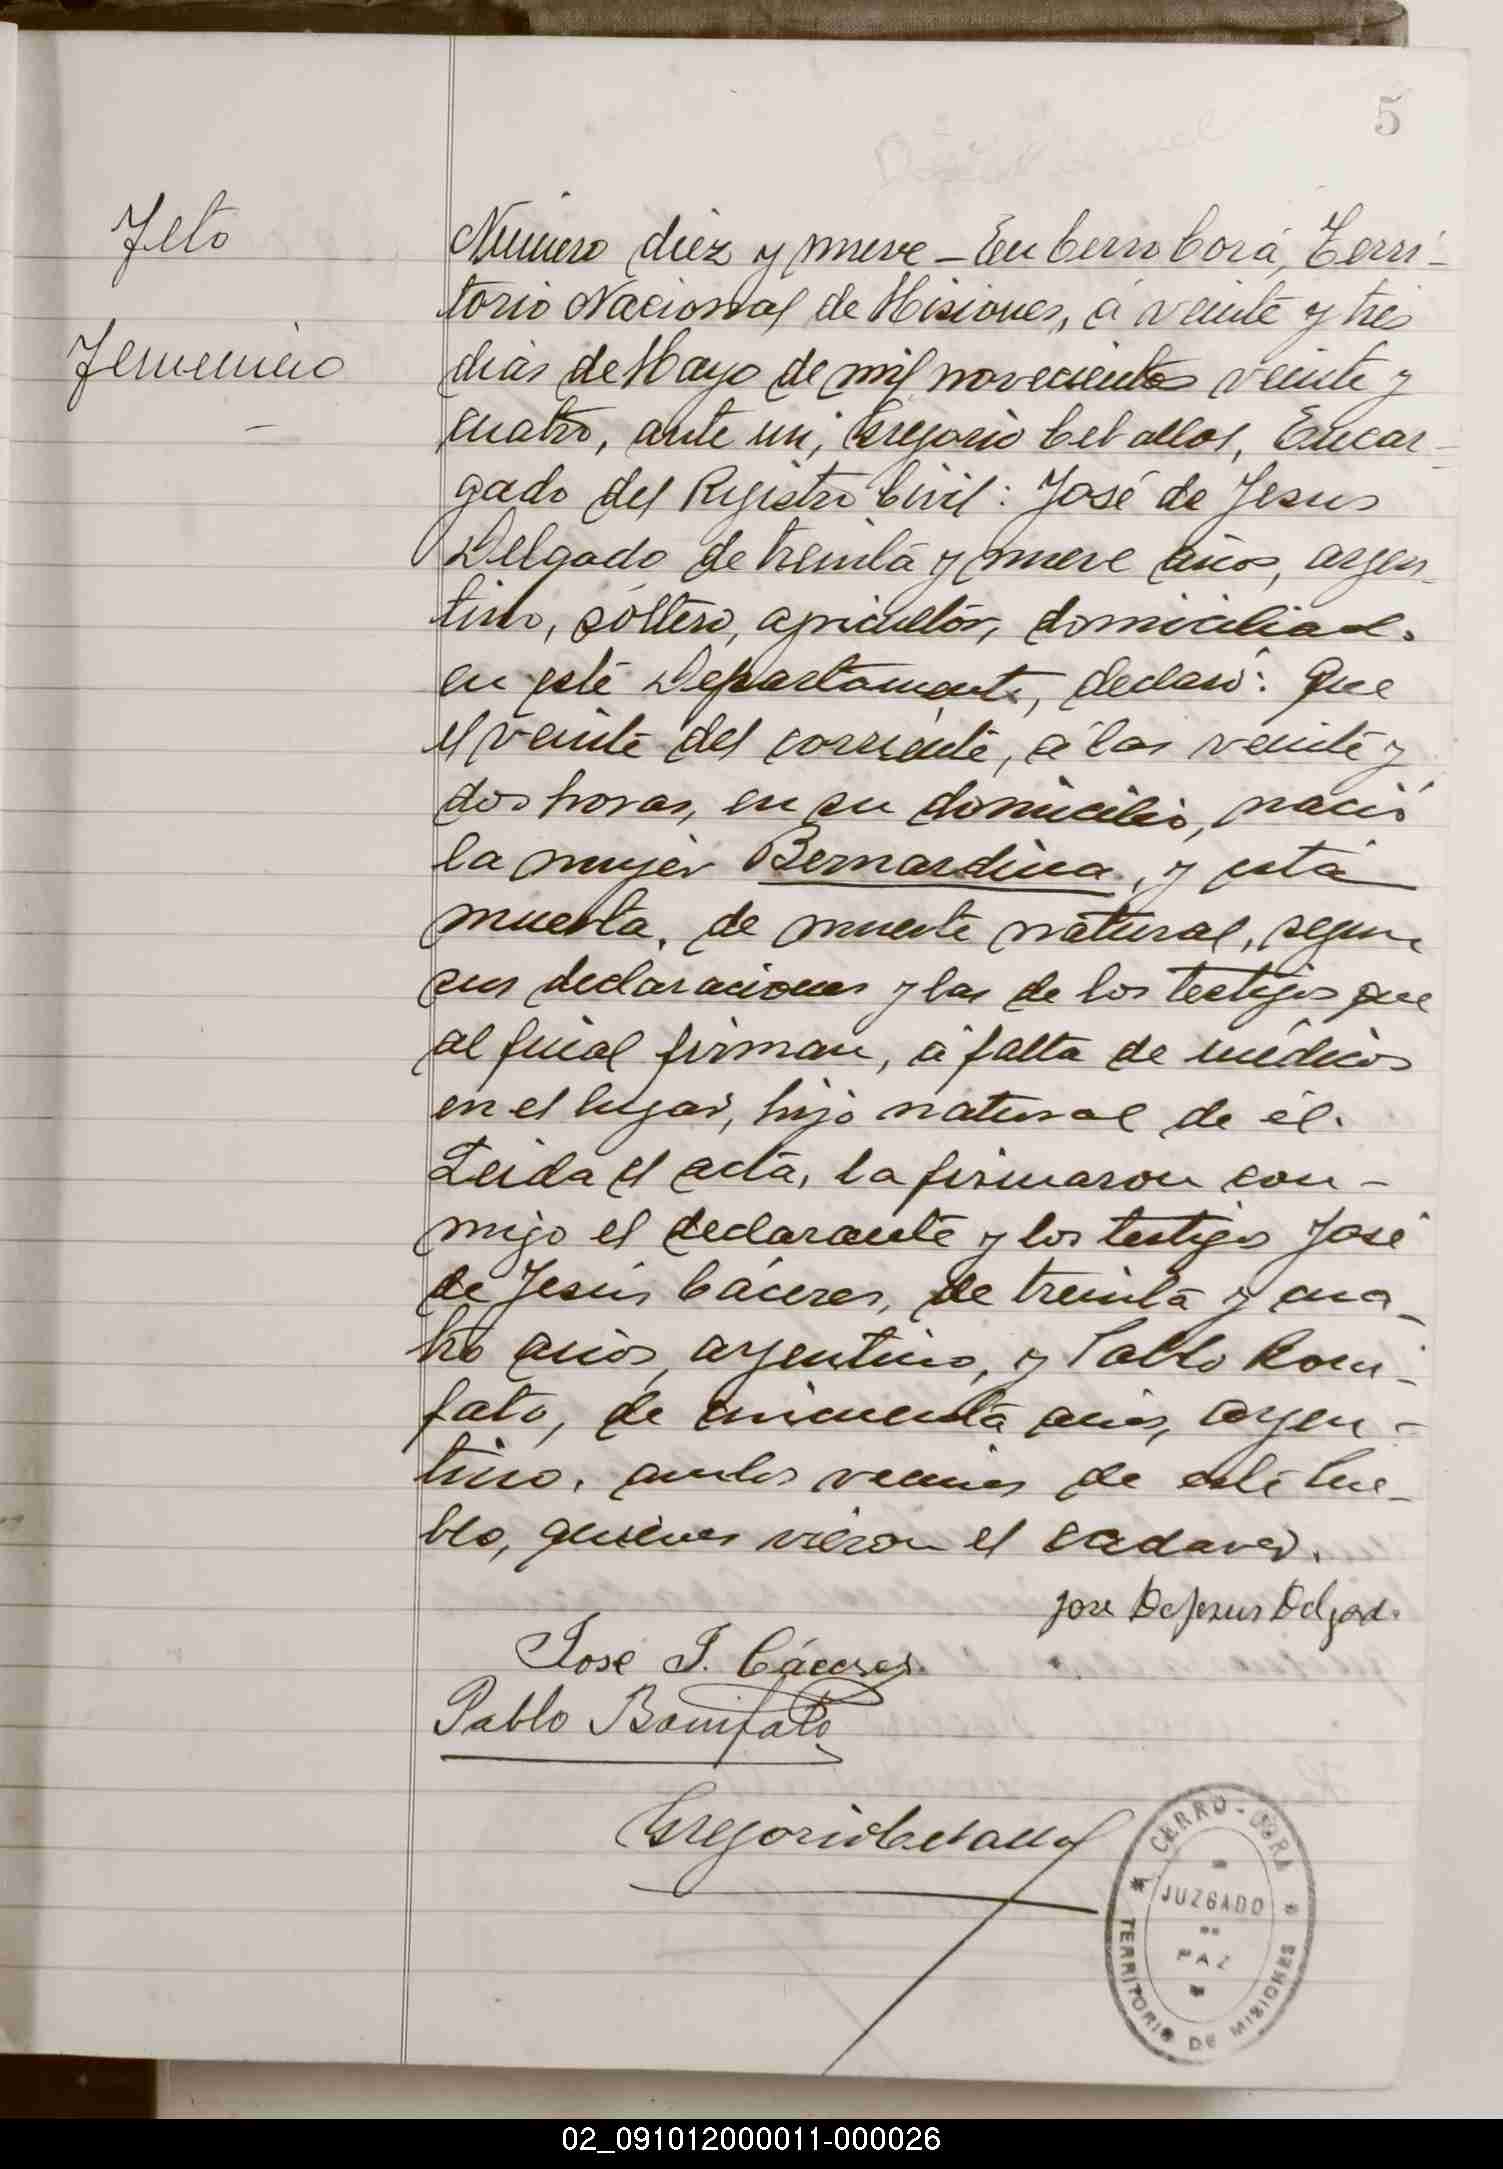 5
Feto
Femenino
Número diez y nueve – En Cerro Corá, Terri-
torio Nacional de Misiones, á veinte y tres
dias de Mayo de mil novecientos veinte y
cuatro, ante mi, Gregorio Ceballos, Encar-
gado del Registro Civil: José de Jesus
Delgado de treinta y nueve años, argen-
tino, soltero, agricultor, domiciliado
en este Departamento, declaró: Que
el veinte del corriente, á las veinte y
dos horas, en su domicilio, nació
la mujer Bernardina, y está
muerta, de muerte natural, segun
sus declaraciones y las de los testigos que
al final firman, á falta de médicos
en el lugar, hijo natural de él.
Leida el acta, la firmaron con-
migo el declarante y los testigos José
de Jesús Cáceres, de treinta y cua-
tro años, argentino, y Pablo Boni-
fato, de cincuenta años, argen-
tino, ambos vecinos de este Pue-
blo, quienes vieron el cadaver.
Jose De Jesus Delgado
José J. Cáceres
Pablo Bonifato
Gregorio Ceballos
CERRO-CORA
JUZGADO
DE
PAZ
TERRITORIO DE MISIONES
02_091012000011-000026